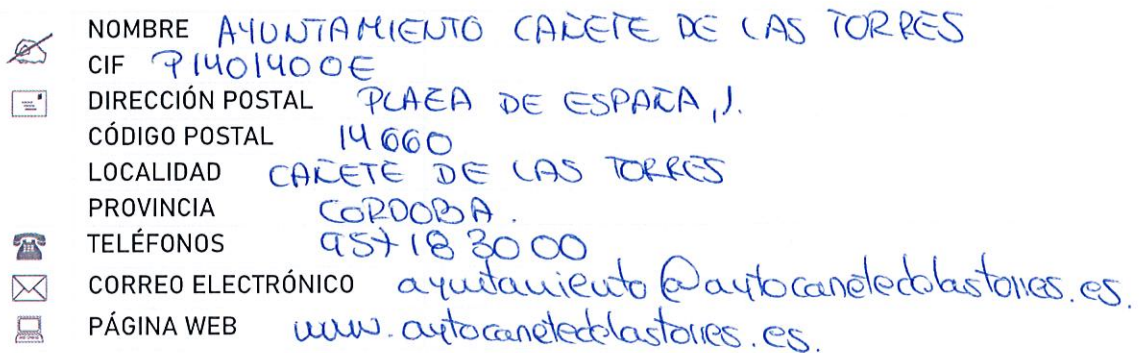 NOMBRE AYUNTAMIENTO CAÑETE DE LAS TORRES
CIF P1401400E
DIRECCIÓN POSTAL PLAZA DE ESPAÑA, 1.
CÓDIGO POSTAL 14660
LOCALIDAD CAÑETE DE LAS TORRES
PROVINCIA CORDOBA.
TELÉFONOS 957 18 30 00
CORREO ELECTRÓNICO ayuntamiento@aytocanetedelastorres.es.
PÁGINA WEB www.aytocanetedelastorres.es.